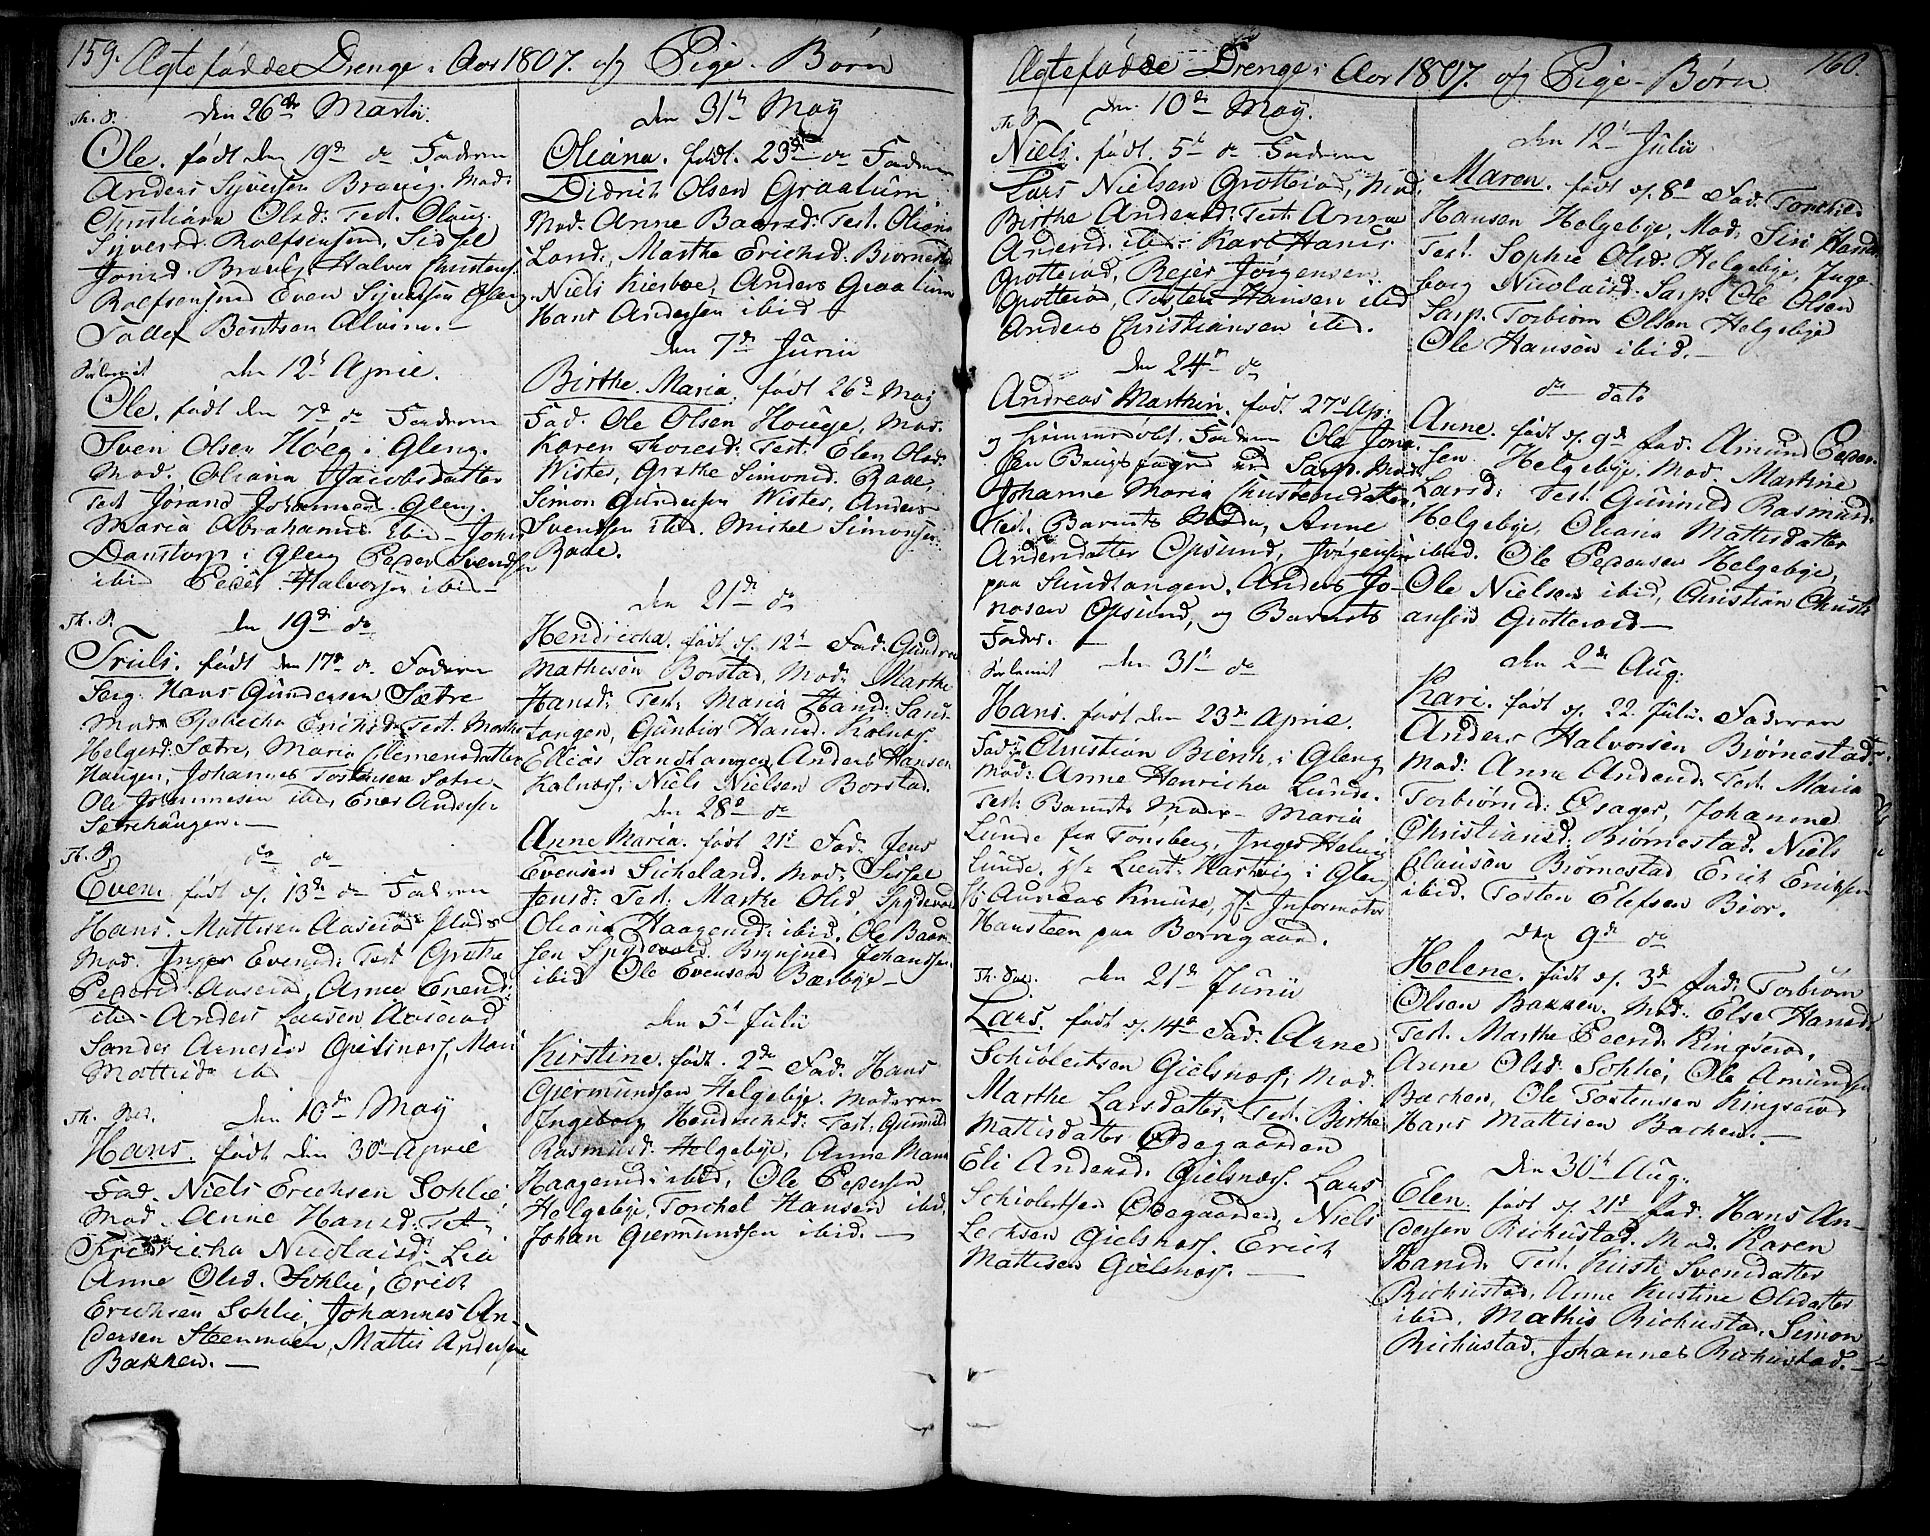 159. Ægtefødde Drenge i Aar 1807. og Pige-Børn
Th. P. den 26de Martii.
Ole. født den 19de do Faderen
Anders Syversen Bravig. Mod:
Christiana Olsd: Test. Olaug
Syversd: Rolfsøusund, Sidsel
Jonsd. Bravig, Halvor Christens.
Rolfsøusund Even Syvertsen Gleng
Tollef Bentsen Alvim. —
den 12t April.
Ole. født den 7de do Faderen
Sven Olsen Høeg i Gleng.
Mod. Oliana Jacobsdatter
Test Jorand Johannesd. Gleng.
Maria Abrahams. ibid - John
Danstorp i Gleng Peder Svends.
ibid Peder Halvorsen ibid —
Th. P. den 19de do
Truls. født den 17de do Faderen
Serg. Hans Gundersen Sætre
Mod: Rebecka Erichsd: Test. Marthe
Helgesd: Sætre, Maria Clemensdatter
Haugen, Johannes Torstensen Sætre
Ole Johannesen ibid, Ener Andersen
Sætrehaugen. —
Th. P. do do
Even. født d. 13de do Faderen
Hans Mattisen Aaserød
Mod. Inger Evensd: Test Grethe
Pedersd. Aaserød, Anne Evensd:
ibid - Anders Larsen Aaserød
Sander Arnesen Gielsnæs,
Mattisdr ibid
Th. Ped. den 10de May
Hans. født den 30te April
Fad. Niels Erichsen Sohlie
Mod. Anne Hansd: Test.
Fridricha Nicolaisd: Lie
Anne Olsd. Sohlie, Erich
Erichsen Sohlie, Johannes An-
dersen Steenmoen, Mattis Andersen
Bakken. —
den 31t May
Oliana. født. 23de do Faderen
Didrich Olsen Graalum.
Mod. Anne Baarsd: Test. Oliana
Land:, Marthe Erichsd. Biørnestad
Niels Kierboe, Anders Graalum
Hans Andersen ibid —
den 7de Junii
Birthe. Maria. født 26de May
Fad. Ole Olsen Houge, Mod.
Karen Thoresd: Test. Elen Olsd:
Wister, Grethe Simonsd. Rade,
Simon Gundersen Wister, Anders
Svendsen ibid. Michel Simonsen
Rade.
den 21de do
Hendricka. født d. 12t Fad: Gunder
Mathisen Borstad. Mod: Marthe
Hansd: Test: Maria Hansd: Sand-
tangen, Gunbior Hansd. Kolnæs.
Ellias Sandtangen, Anders Hansen
Kalnæs, Niels Nielsen Borstad.
den 28de do
Anne Maria. født 21t Fad. Jens
Evensen Sicheland. Mod: Sissel
Jensd: Test: Marthe Olsd, Spydevold
Oliana Haagensd: ibid. Ole Baar-
sen Spydevold. Brynjned Johandsen
ibid Ole Evensen Bæsbye —
den 5t Julii
Kirstine. født. 2de Fad. Hans
Giermundsen Helgebye. Moderen
Ingeborg Hendrichsd: Test: Gunnild
Rasmusd: Helgebye, Anne Marie
Haagensd: ibid, Ole Pedersen
Helgebye, Torchel Hansen ibid.
Johan Giermundsen ibid. —
Ægtefødde Drenge i Aar 1807. og Pige-Børn 160.
Th. P. den 10de May.
Niels. født. 5t do Faderen
Lars Nielsen Grotterød, Mod:
Birthe Andersd: Test: Anna
Andersd. ibid. Kari Hansd.
Grotterød, Rejer Jørgensen
Grotterød, Torsten Hansen ibid
Anders Christiansen ibid.
den 24de do
Andreas Marthin. fød. 27de Ap:
og hiemmedøbt. Faderen Ole Jona
sen Brugsfogd ved Sarp. Mod.
Johanne Maria Christensdatter,
Test. Barnets Modder, Anne
Andersdatter Opsund, Jørgensen
paa Sundtangen. Anders Jo-
nasen Opsund, og Barnets
Fader. —
den 31t do
Hans. født den 23de April.
Fad: Christian Bienk, i Gleng
Mod: Anne Henricha Lunde.
Test: Barnets Moder - Maria
Lunde fra Tonsberg, Inger Helvig
Lunde. Hr Lieut: Hartvig i Gleng
Hr Aureas Knuse, Hr Informator
Hansteen paa Borregaard.
Th. Ped. den 21de Junii
Lars. født d. 14de Fad: Arne
Schiølertsen Gielsnæs; Mod.
Marthe Larsdatter, Test. Birthe
Mattisdatter Ødegaarden
Eli Andersd. Gielsnæs. Lars
Schiolertsen Ødegaarden, Niels
Lersen Gielsnæs. Erich
Mattisen Gielsnæs. —
den 12t Julii
Maren. født d. 8de Fad: Torchild
Hansen Helgebye, Mod: Siri Hansd:
Test. Sophie Olsd. Helgebye, Inge
borg Nicolaisd: Sarp. Ole Olsen
Sarp. Torbiøn Olsen Helgebye
Ole Hansen ibid. —
do dato
Anne. født d. 9de fad. Amund Peder
sen Helgebye. Mod Martine
Larsd: Test. Gunnild Rasmusd:
Helgebye, Oliana Mattisdatter
ibid. Ole Pedersen Helgebye,
Ole Nielsen ibid, Christian Christi
ansen Grotterød —
den 2de Aug.
Kari. født d. 22. Julii. Faderen
Anders Halvorsen Biørnestad
Mod: Anne Andersd: Test. Maria
Torbiørnsd: Øsager, Johanne
Christiansd: Biørnestad. Niels
Clausen Biørnestad Erich Eriksen
ibid. Torsten Elefsen Bior.
den 9de do
Helene. født d. 3de fad: Torbiørn
Olsen Bakken. Mod: Else Hansd:
Test. Marthe Peersd: Ringserød,
Anne Olsd: Sohlie, Ole Amundsen
Bachen, Ole Torstensen Ringserød
Hans Mattisen Bachen. —
den 30t Aug.
Elen. født d. 21de fad: Hans An-
dersen Richustad. Mod. Karen
Hansd: Test. Kirsti Svensdatter
Richustad, Anne Kirstine Olsdatter
ibid. Mathis Richustad. Simon
Richustad. Johannes Richustad. —